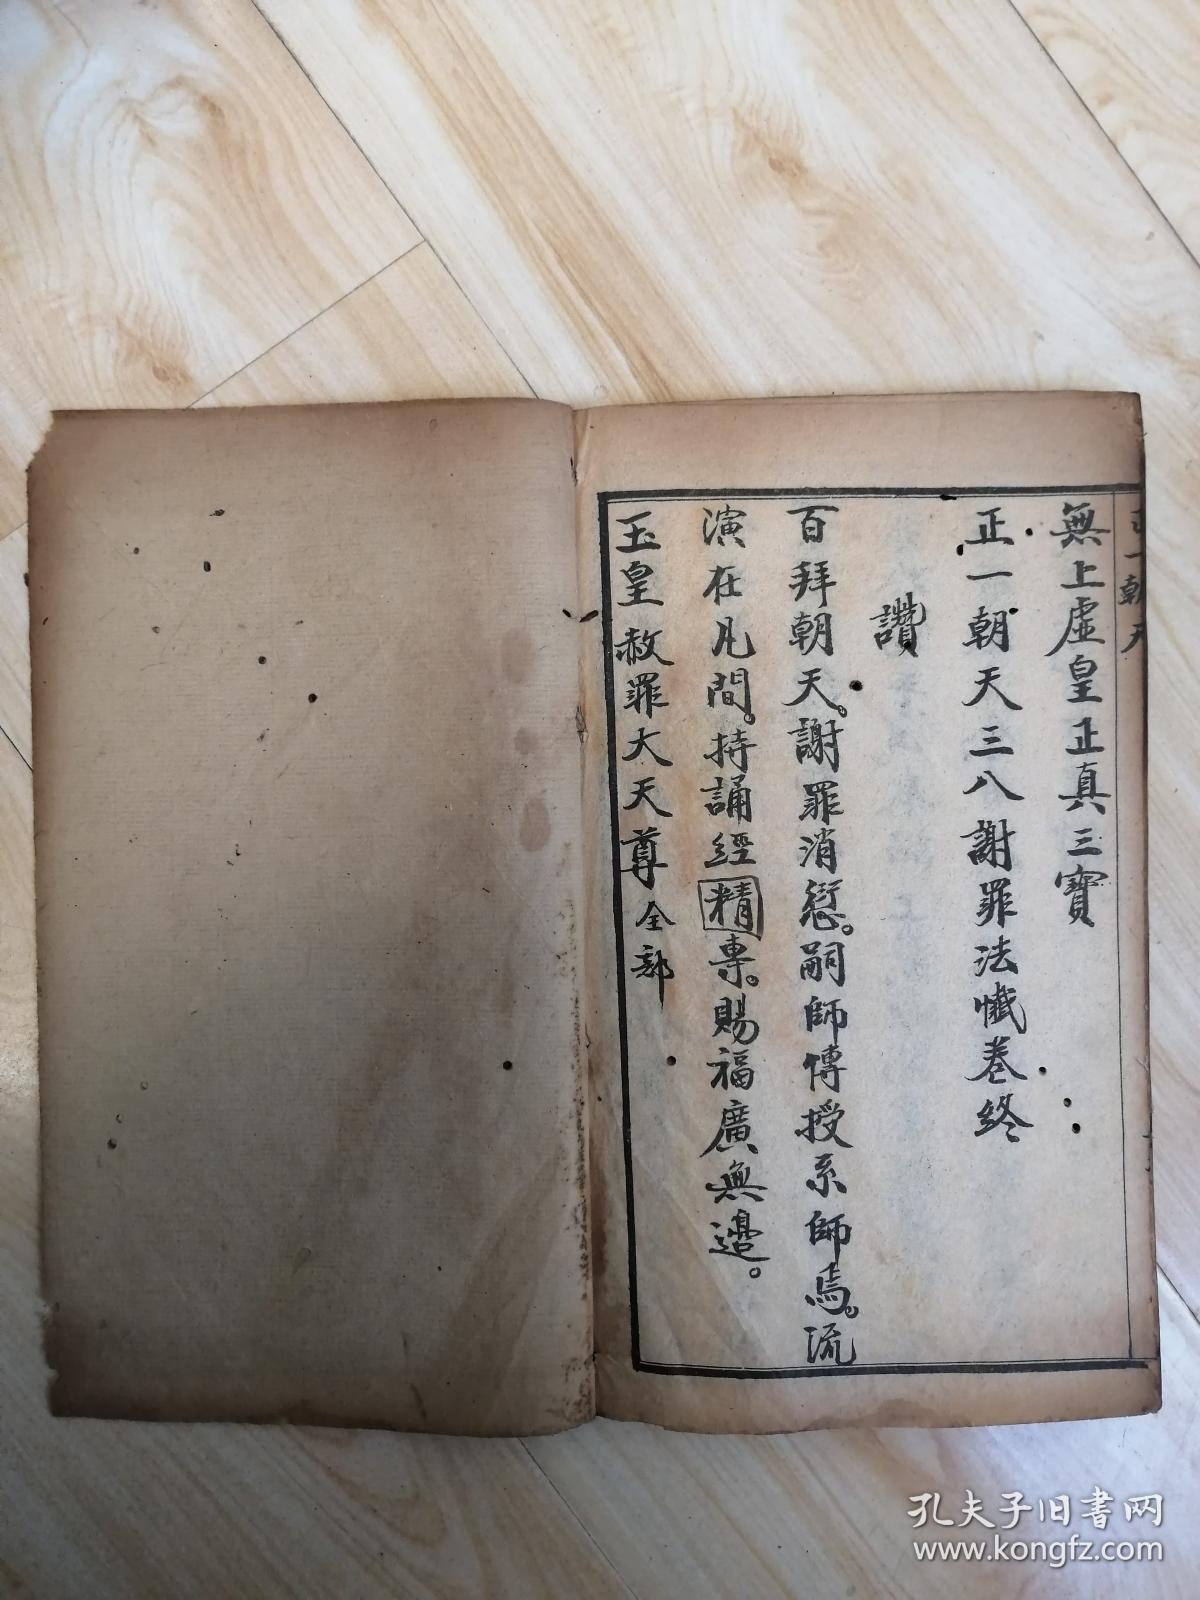 正一朝天
無上虛皇正真三寶
正一朝天三八謝罪法懺卷終
讚
百拜朝天。謝罪消愆。嗣師傳授系師焉。流
演在凡間。持誦經精專。賜福廣無邊。
玉皇赦罪大天尊全部
孔夫子旧书网
www.kongfz.com